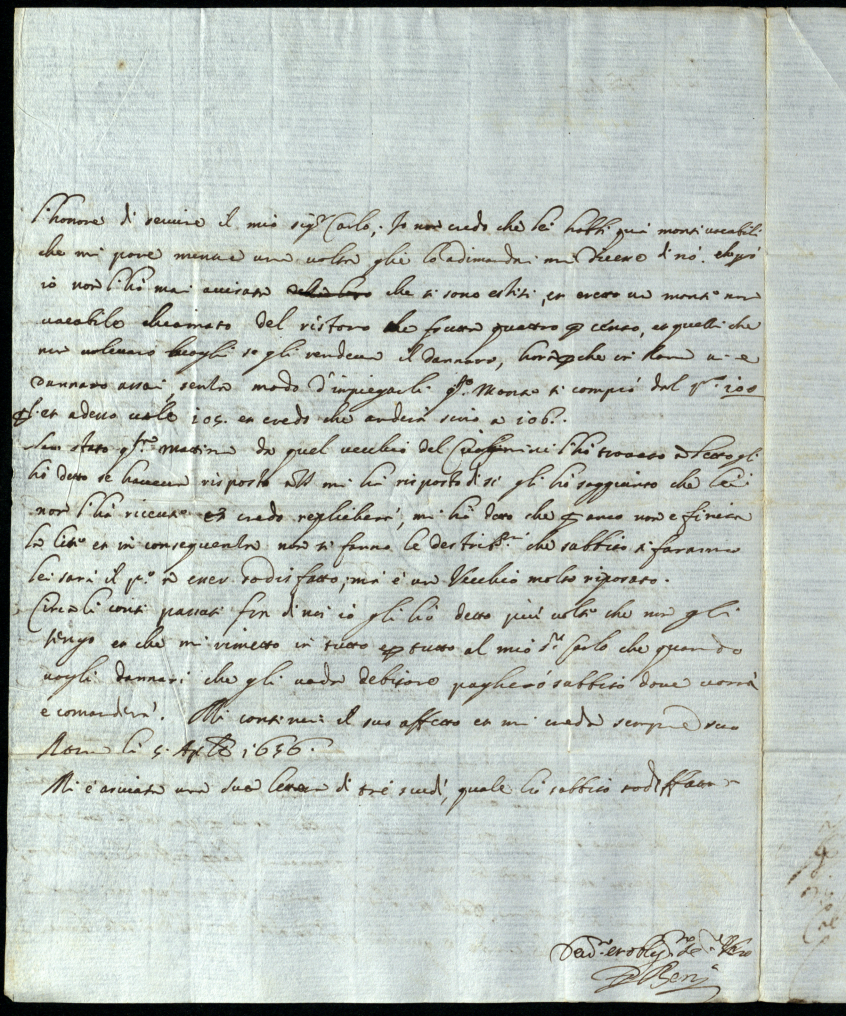 l'honore di servire il mio sigr Carlo, Io non credo che lei habbi quà monti vacabili
che mi pare mentre una volta glie lo adimandai mi dicesse di nò. 
io non l'hò mai avisata che si sono estiti, et eretto un monte non
vacabile chiamato del ristoro che frutta quattro per cento, et quelli che
non volevano luoghi se gli rendeva il dannaro, hora che in Roma vi è
dannaro assai senza modo d'impiegarli qsto Monte si comprò dal pr. 100
et adesso vale 105. et credo che anderà sino a 106.
Son stato qsta mattina da quel vecchio del l'hò trovato à letto gli
hò detto se haveva risposto à VS mi hà risposto di si gli hò soggiunto che lei
non l'hà ricevuta et credo replicherà, mi hà detto che per anco non è finita
la lite et in conseguenza non si fanno le che subbito si faranno
lei sarà il po à esser sodisfatto, mà è un Vecchio molto riposato.
Circa li conti passati frà di noi io gli hò detto più volte che non gli
tengo et che mi rimetto in tutto e per tutto al mio Sr Carlo che quando
vogli dannari che gli vada debitore pagherò subbito dove vorrà
e comanderà. Mi continui il suo affetto et mi creda sempre suo
Roma li 5 Aple 1656.
Mi è arrivata una sua lettera di tré scudi, quale hò subbito sodisffatta
Servre
Beni